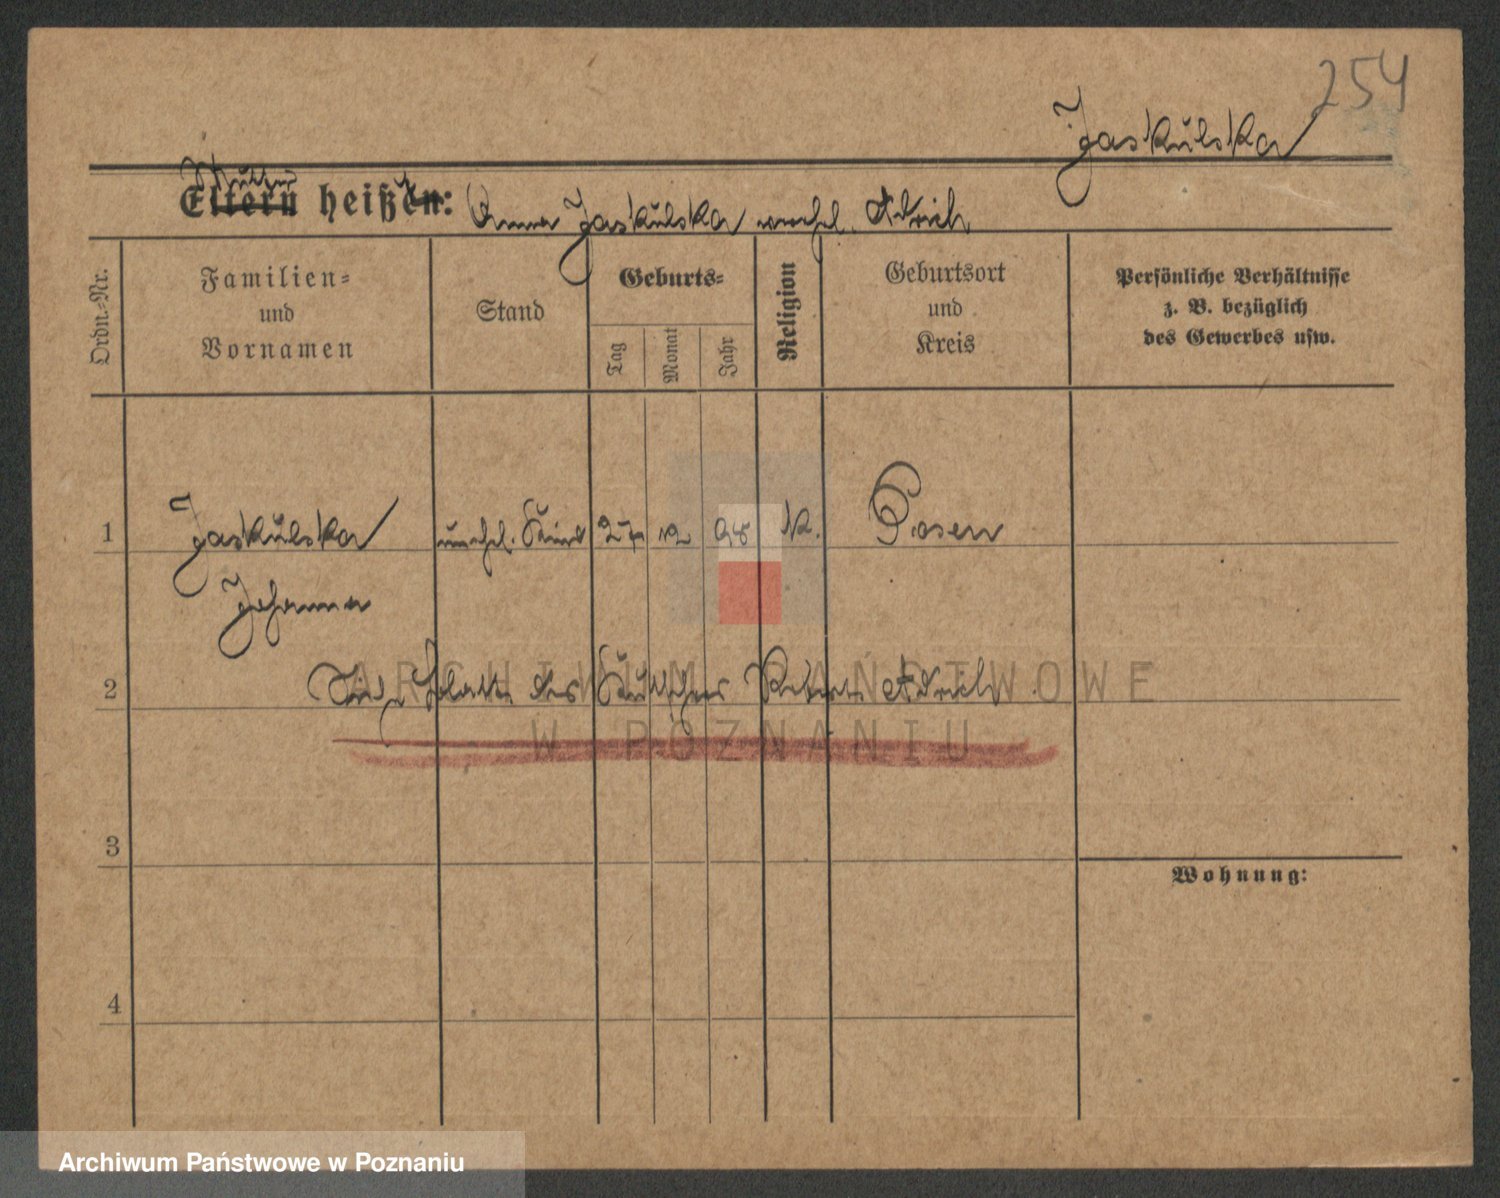 254
Jaskulska
Mutter
Eltern heißen: Anna Jaskulska verehel. Adrich
Ordn.-Nr.
Familien-
und
Vornamen
Stand
Geburts-
Tag
Monat
Jahr
Religion
Geburtsort
und
Kreis
Persönliche Verhältnisse
z. B. bezüglich
des Gewerbes usw.
1 Jaskulska unehel. Kind 27 12 98 K. Posen
Johanna
2 Sieh Blatt des Robert Adrich
3
Wohnung:
4
ARCHIWUM PAŃSTWOWE
W POZNANIU
Archiwum Państwowe w Poznaniu